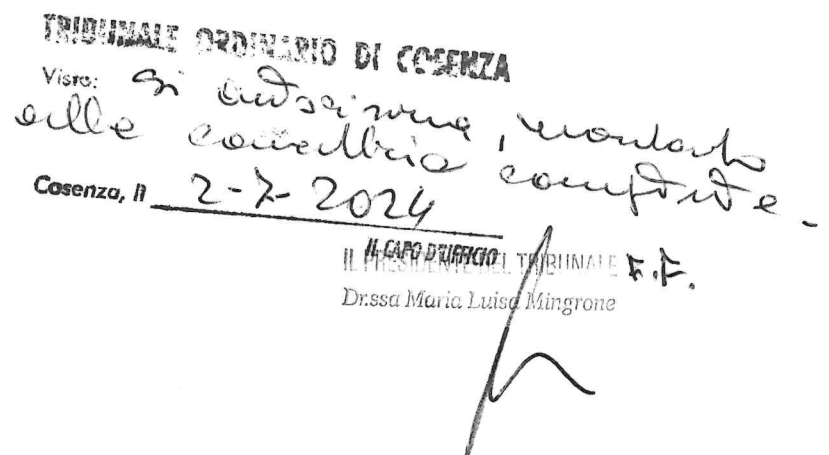 TRIBUNALE ORDINARIO DI COSENZA
Visto: Si autorizza, mandando
alla cancelleria competente.
Cosenza, lì 2-7-2024
IL CAPO D'UFFICIO
IL PRESIDENTE DEL TRIBUNALE F.F.
Dr.ssa Maria Luisa Mingrone